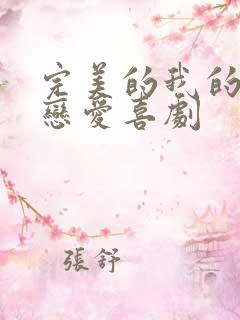 完美的我的
戀愛喜劇
張舒